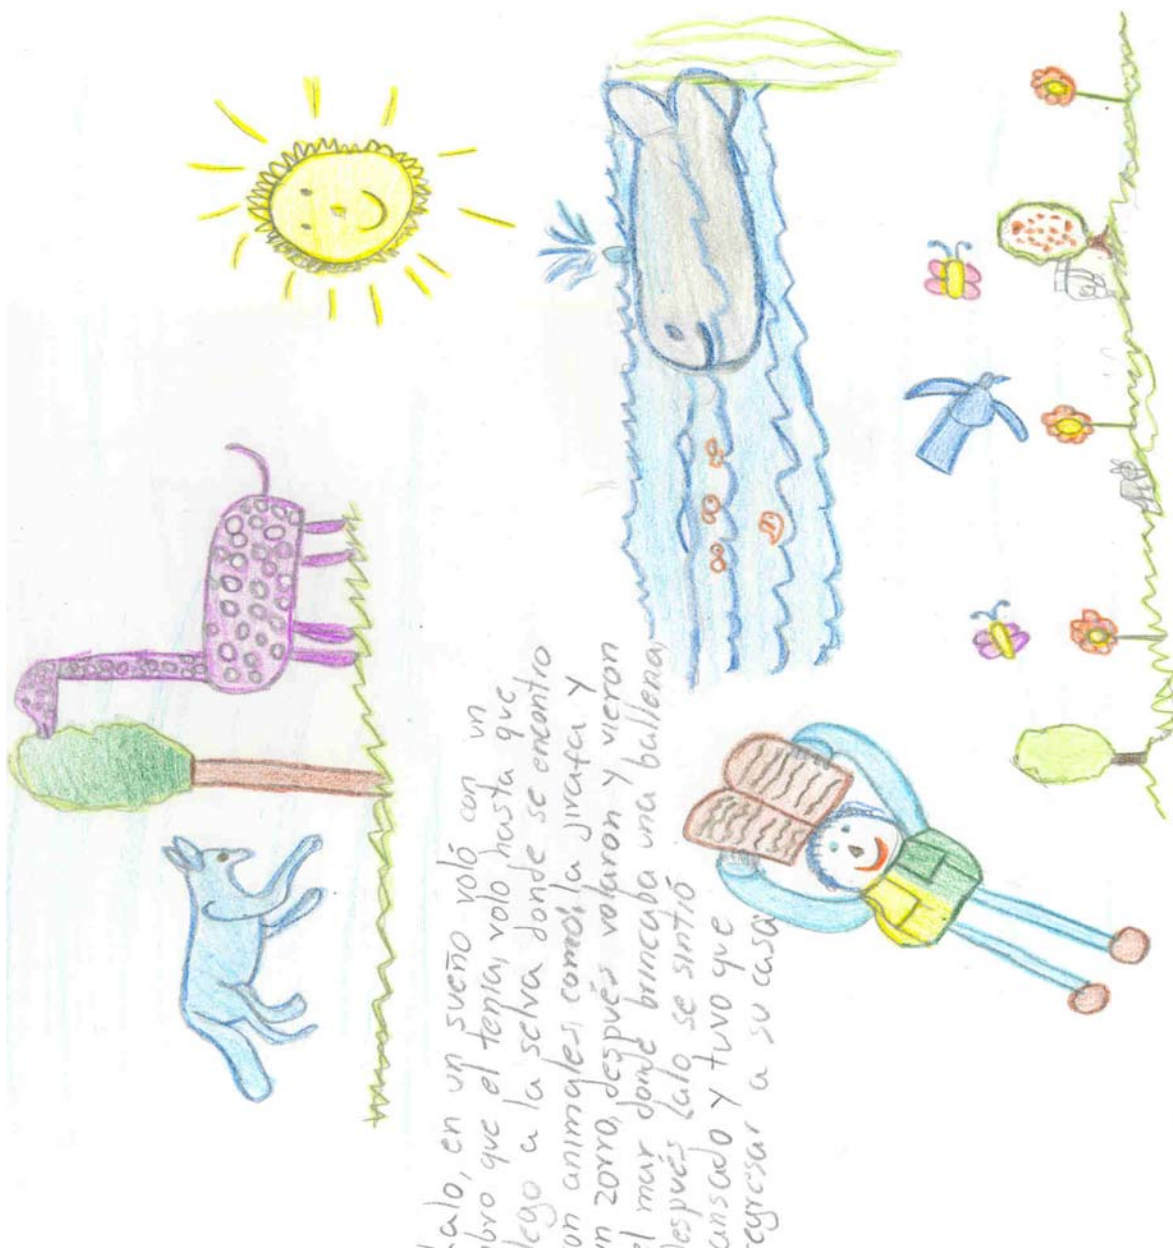 Lalo, en un sueño voló con un
libro que el tenía, volo hasta que
llego a la selva donde se encontro
con animales como: la jirafa y
un zorro, después volaron y vieron
el mar donde brincaba una ballena,
después Lalo se sintió
cansado y tuvo que
regresar a su casa.